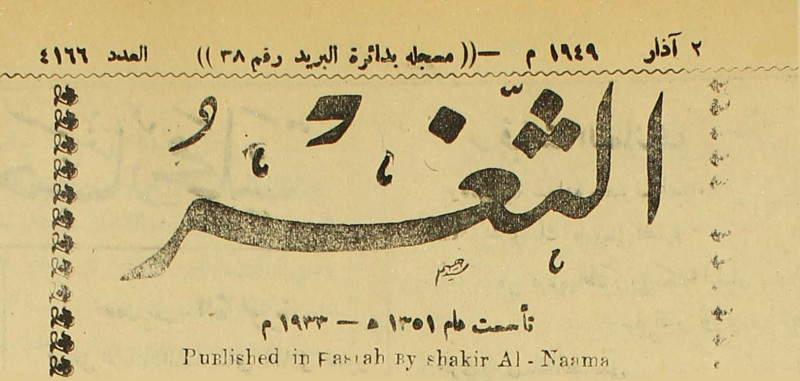 ٢ آذار ١٩٤٩ م —(( مسجله بدائرة البريد رقم ٣٨ )) العدد ٤١٦٦
الثغر
تأسست عام ١٣٥١ ه — ١٩٣٣ م
Published in Basrah By shakir Al - Naama